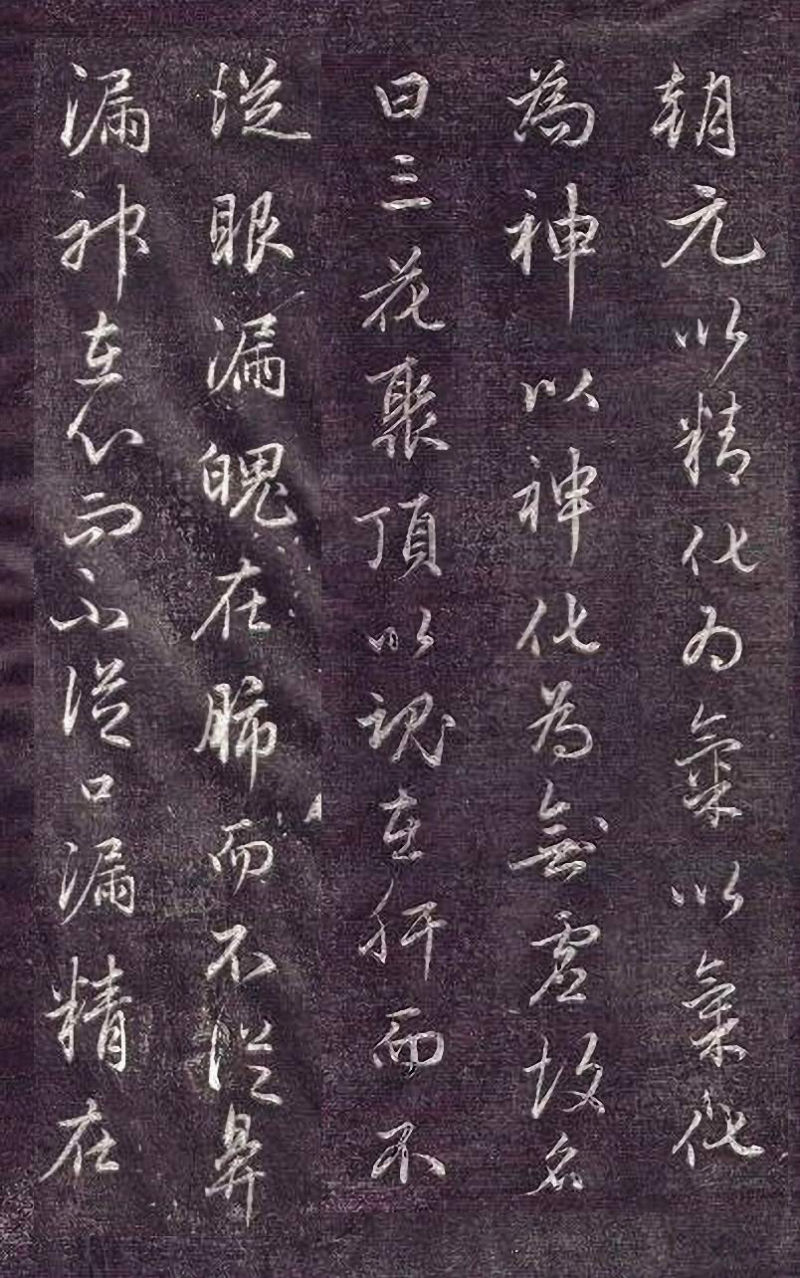 朝元以精化為氣以氣化
為神以神化為無虛故名
曰三花聚頂以魂在肝而不
從眼漏魄在肺而不從鼻
漏神在心而不從口漏精在